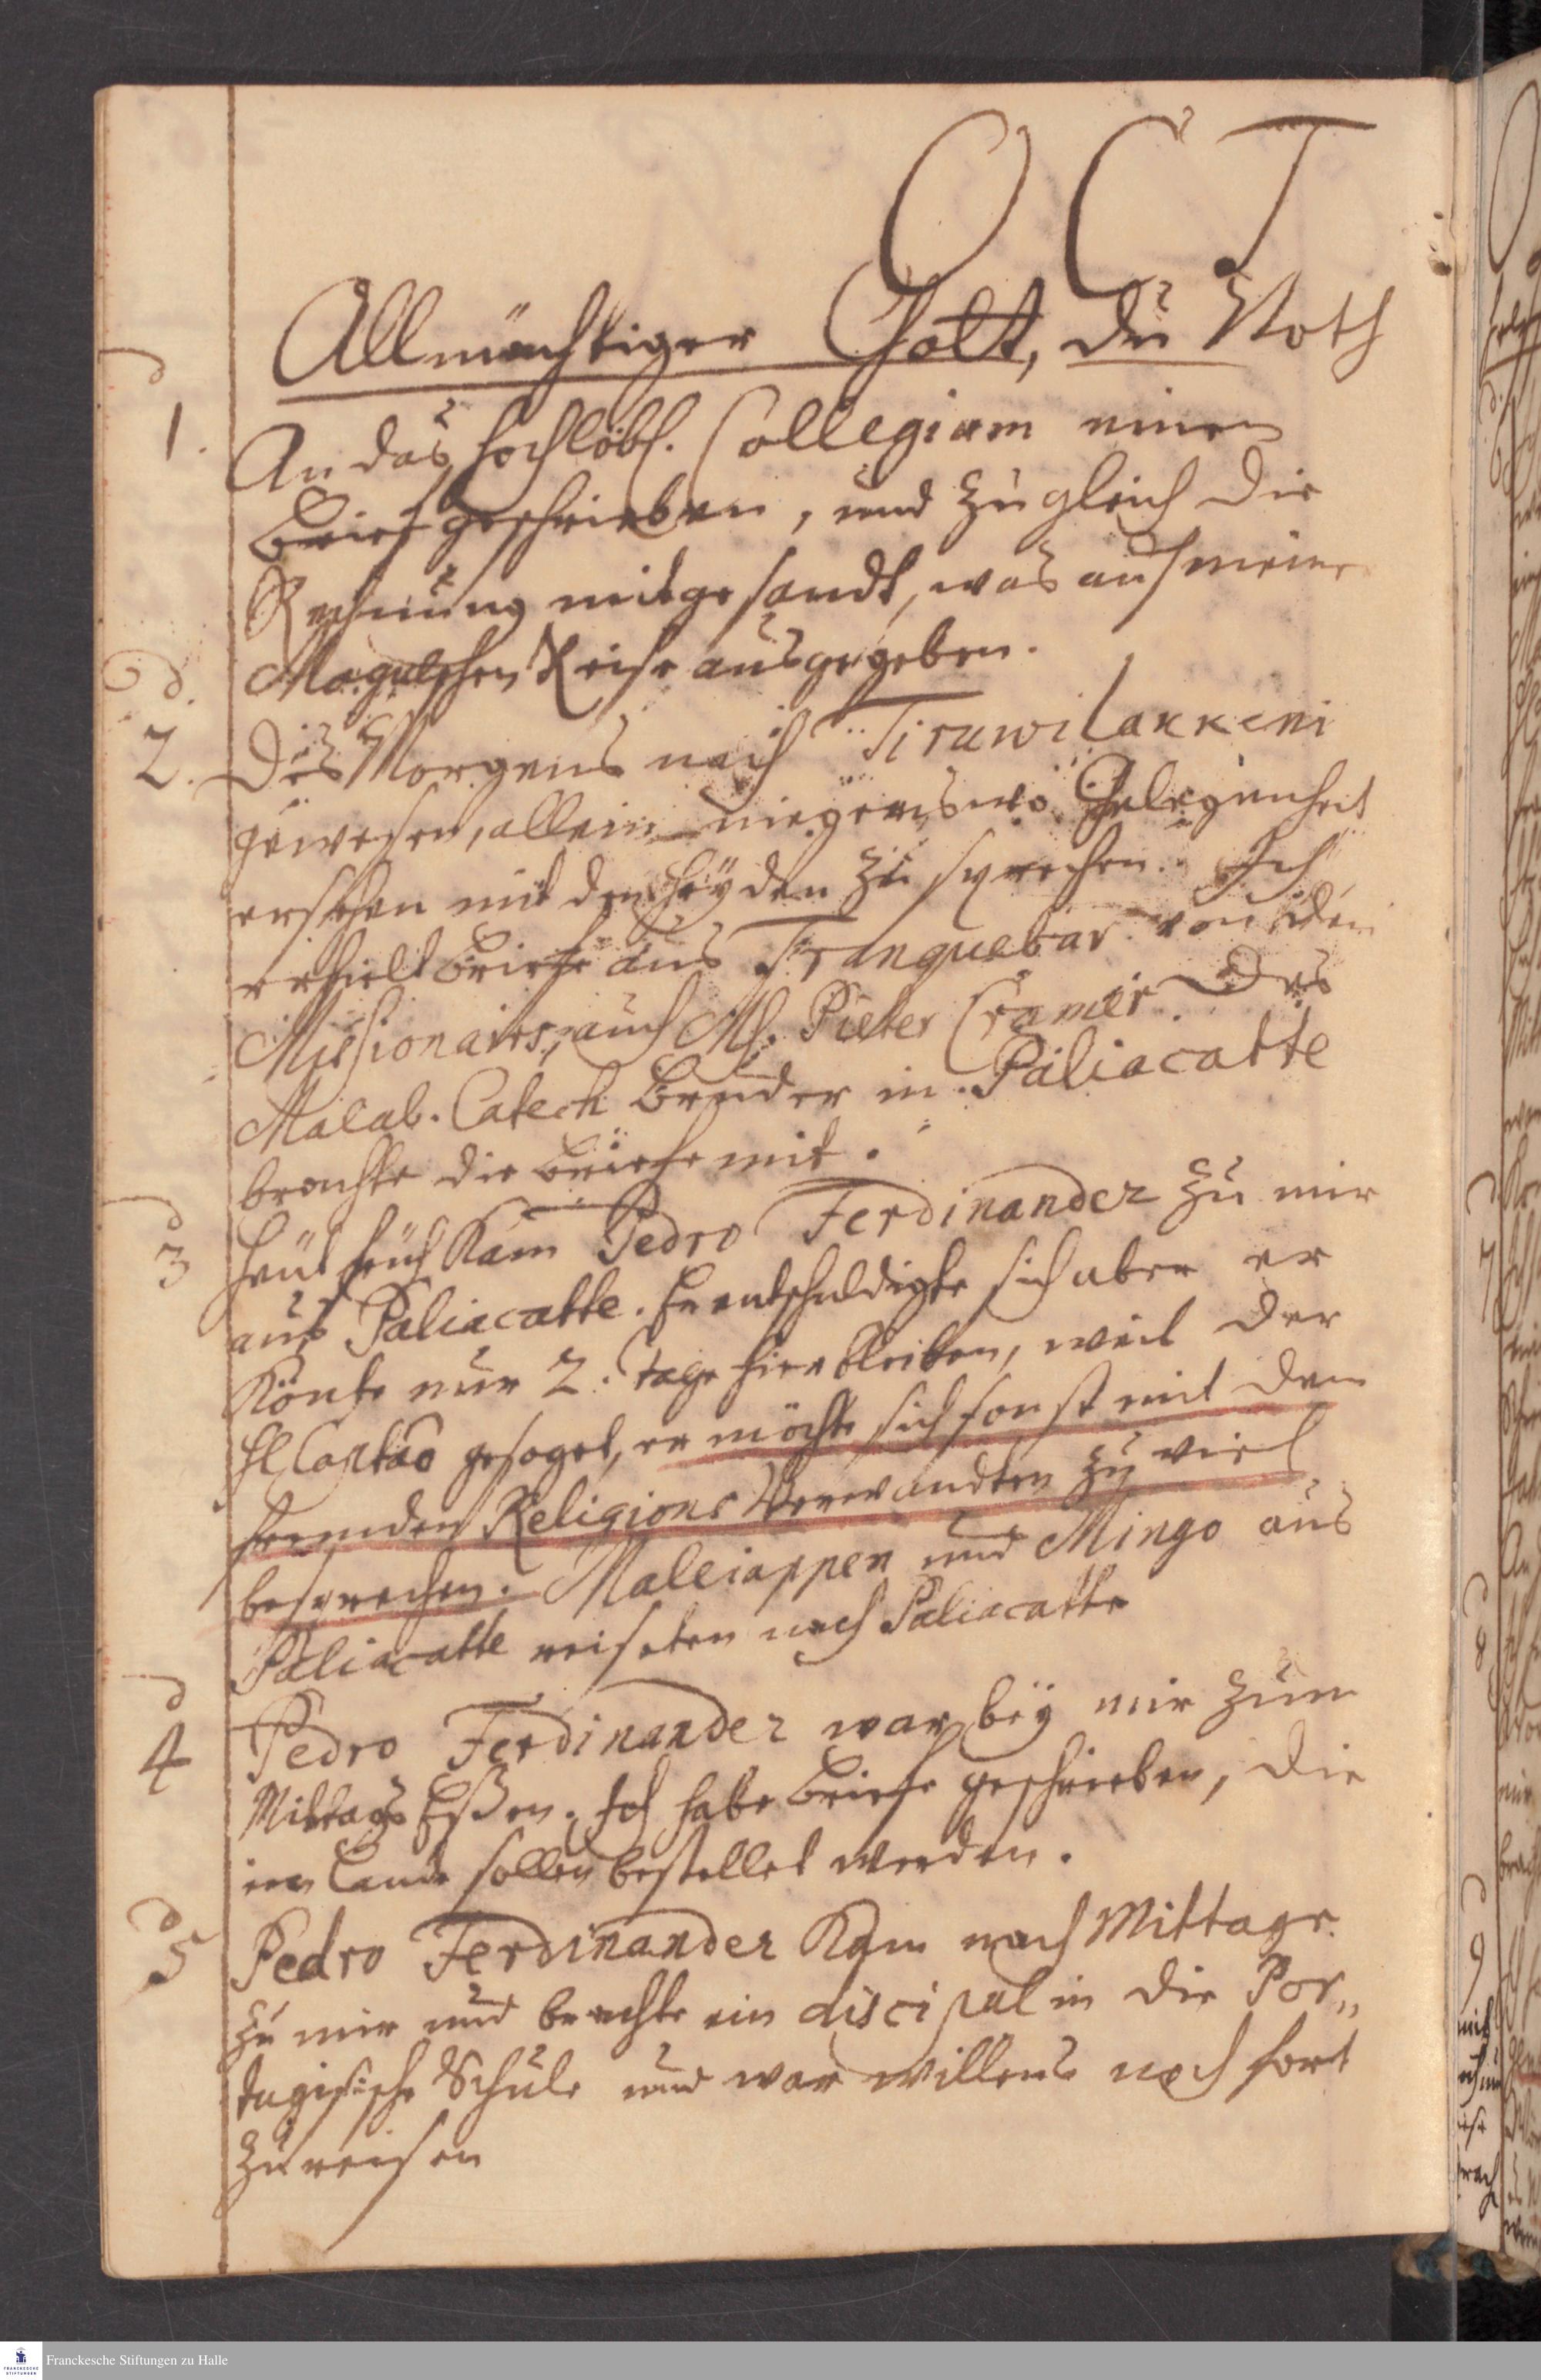 OCT
Allmächtiger Gott, du Noth
d
1. An das hochlöbl. Collegium einen
Brief geschrieben, und zugleich die
Rechnung mitgesandt, was auf meiner
Mogulschen Reise ausgegeben.
d.
2. Des Morgens nach Tiruwilakkeni
gewesen, allein nirgendswo Gelegenheit
ersehen mit den Heyden zu sprechen. Ich
erhielt Briefe aus Tranquebar von den
Missionairs, auch Mh. Pieter Cramer. Des
Malab. Catech Bruder in Paliacatte
brachte die Briefe mit.
d
3 Heut früh kam Pedro Ferdinandez zu mir
aus Paliacatte. Er entschuldigte sich aber er
könte nur 2. Tage hier bleiben, weil der
H. Captão gesaget, er möchte sich sonst mit den
fremden Religions Verwandten zu viel
besprechen. Maleiappen und Mingo aus
Paliacatte reiseten nach Paliacatte
d
4 Pedro Ferdinandez war bey mir zum
Mittags Eßen. Ich habe Briefe geschrieben, die
im Lande sollen bestellet werden.
d
5 Pedro Ferdinandez kam nach Mittage
zu mir und brachte ein discipul in die Por„
tugisische Schule und war willens noch fort
zu reisen
Franckesche Stiftungen zu Halle